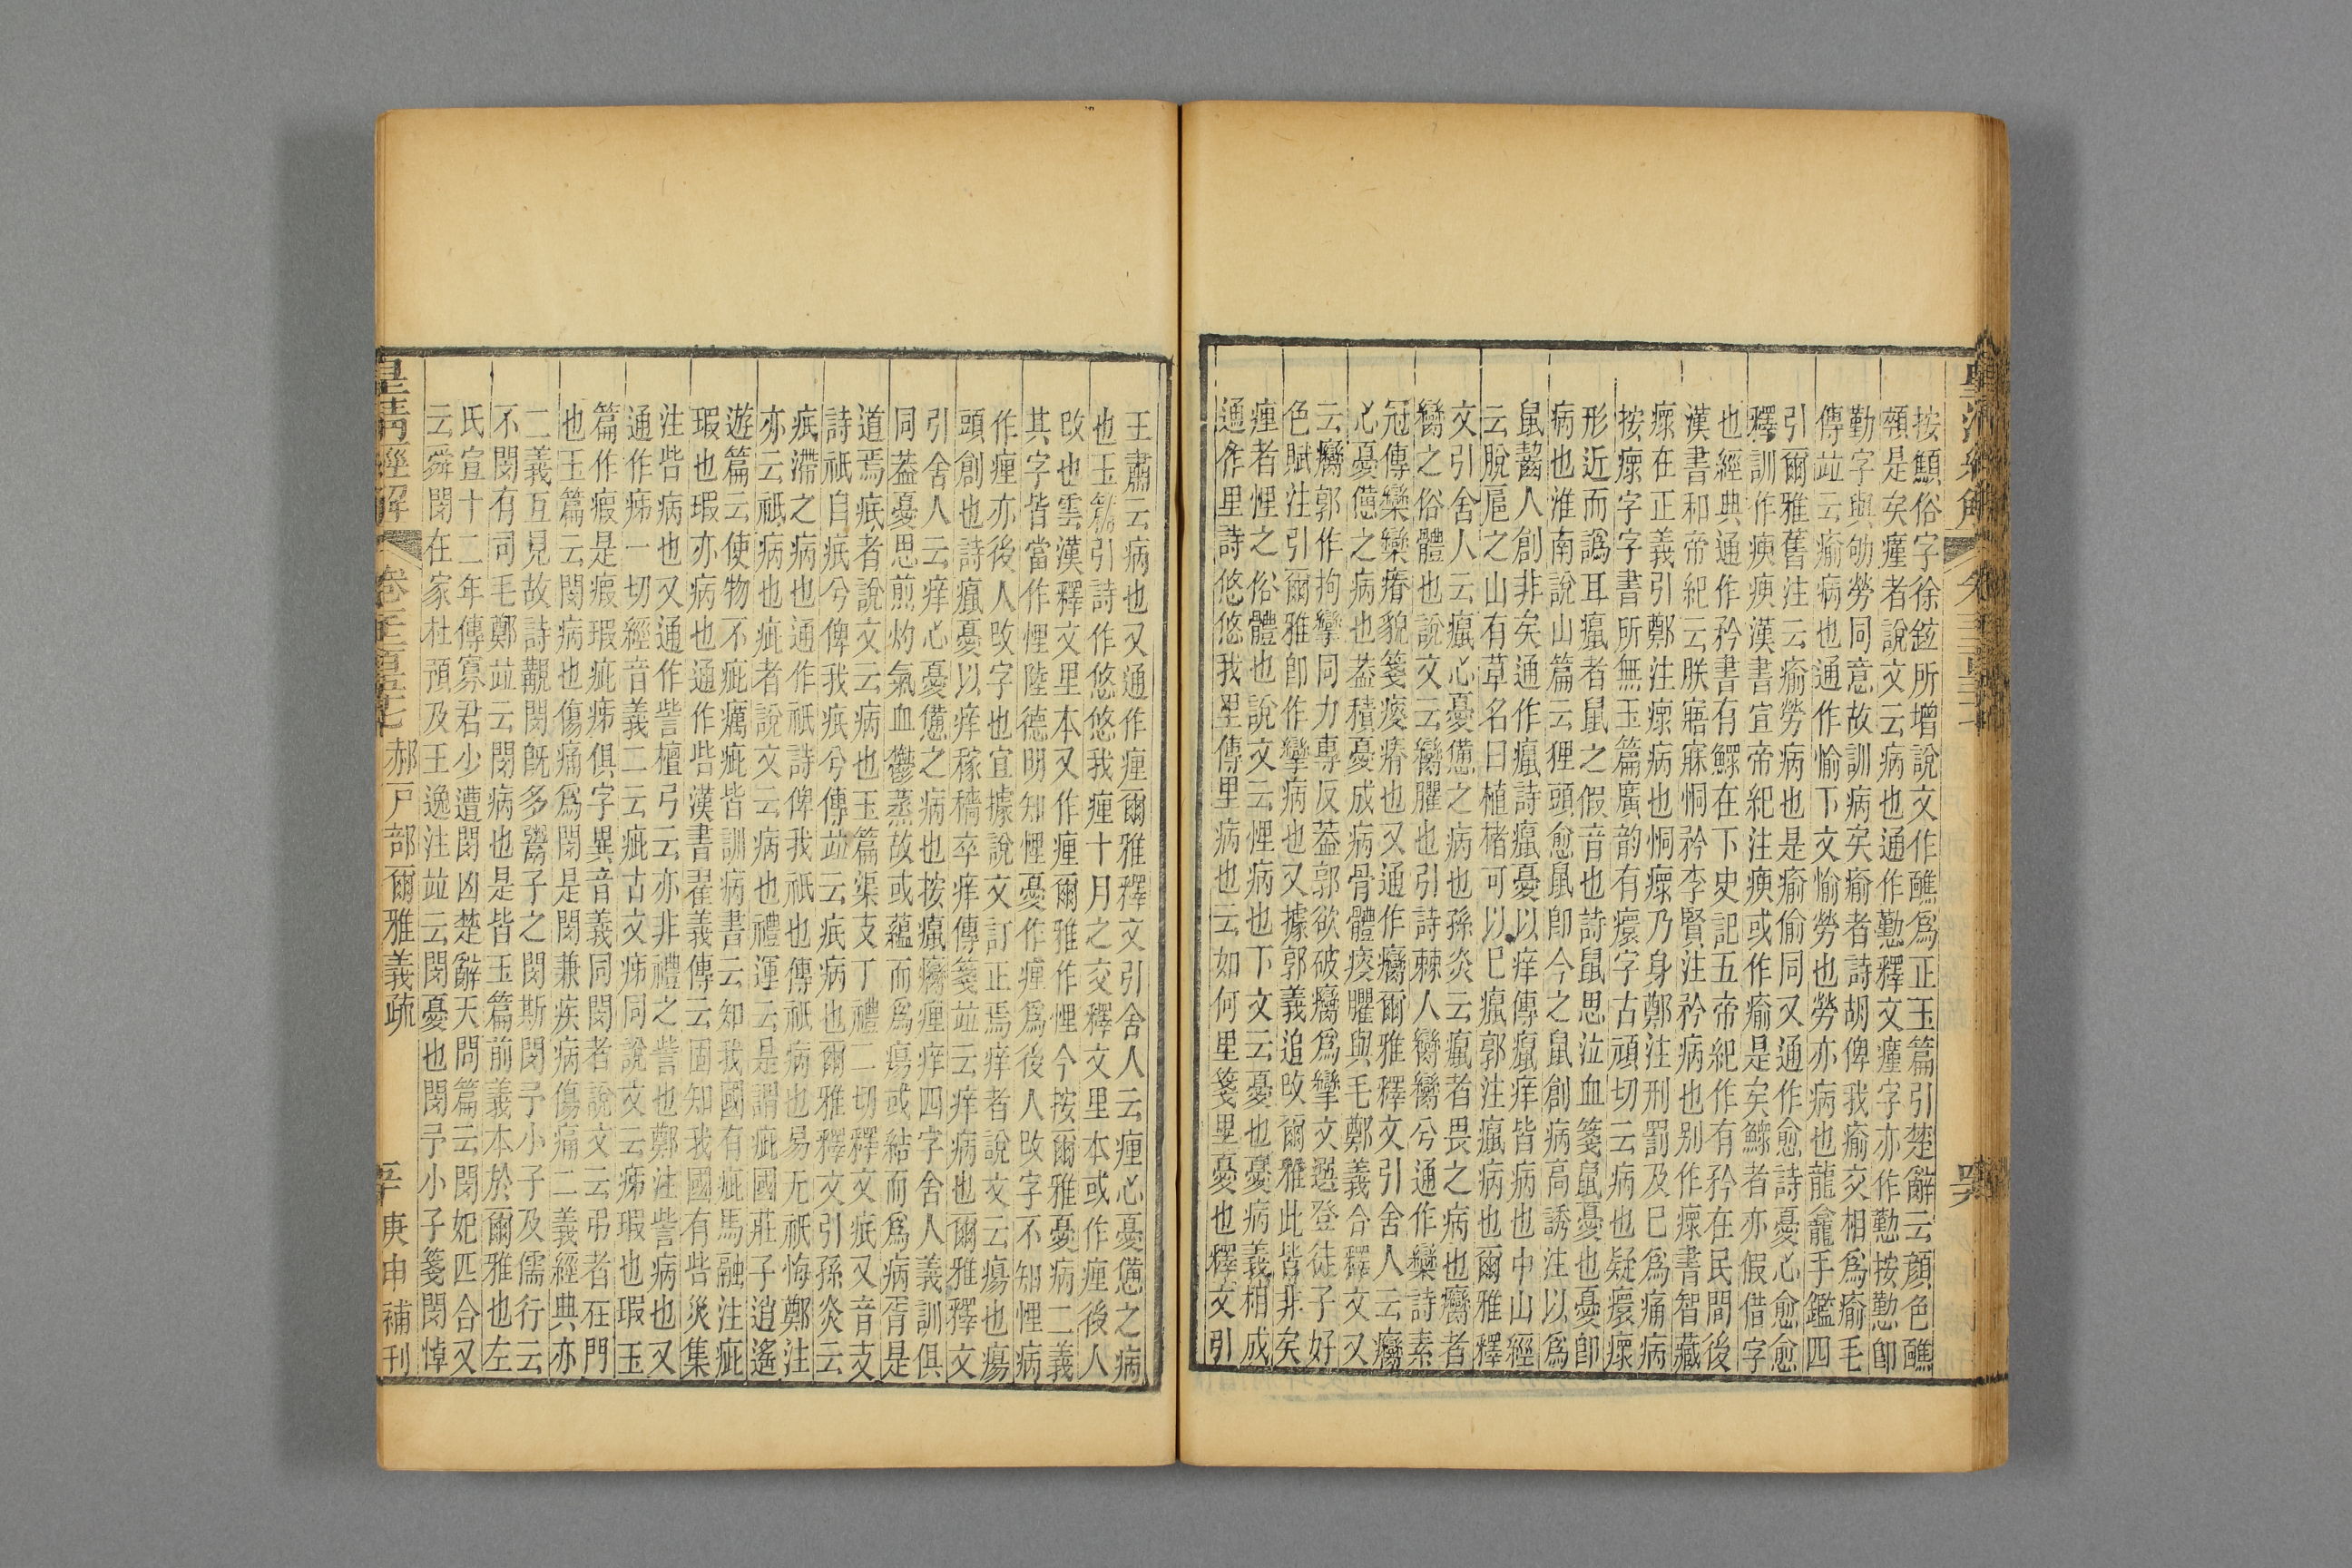 按顦俗字徐鉉所增說文作醮為正玉篇引楚辭云顏色醮
顇是矣瘽者說文云病也通作懃釋文瘽字亦作勤按懃即
勤字與劬勞同意故訓病矣瘉者詩胡俾我瘉交相為瘉毛
傳竝云瘉病也通作愉下文愉勞也勞亦病也龍龕手鑑四
引爾雅舊注云瘉勞病也是瘉偷同又通作愈詩憂心愈愈
釋訓作瘐瘐漢書宣帝紀注瘐或作瘉是矣鰥者亦假借字
也經典通作矜書有鰥在下史記五帝紀作有矜在民間後
漢書和帝紀云朕寤寐恫矜李賢注矜病也別作瘝書智藏
瘝在正義引鄭注瘝病也恫瘝乃身鄭注刑罰及已為痛病
按瘝字字書所無玉篇廣韵有癏字古頑切云病也疑癏瘝
形近而譌耳癙者鼠之假音也詩鼠思泣血箋鼠憂也憂即
病也淮南說山篇云狸頭愈鼠即今之鼠創病高誘注以為
鼠齧人創非矣通作癙詩癙憂以痒傳癙痒皆病也中山經
云脫扈之山有草名曰植楮可以已癙郭注癙病也爾雅釋
文引舍人云癙心憂憊之病也孫炎云癙者畏之病也癵者
臠之俗體也說文云臠臞也引詩棘人臠臠兮通作欒詩素
冠傳欒欒瘠貌箋瘦瘠也又通作癵爾雅釋文引舍人云癵
心憂憊之病也葢積憂成病骨體瘐臞與毛鄭義合釋文又
云癵郭作拘攣同力專反葢郭欲破癵為攣文選登徒子好
色賦注引爾雅即作攣病也又據郭義追改爾雅此皆非矣
瘇者悝之俗體也說文云悝病也下文云憂也憂病義相成
通作里詩悠悠我里傳里病也云如何里箋里憂也釋文引
王肅云病也又通作瘇爾雅釋文引舍人云瘇心憂憊之病
也玉篇引詩作悠悠我瘇十月之交釋文里本或作瘇後人
改也雲漢釋文里本又作瘇爾雅作悝今按爾雅憂病二義
其字皆當作悝陸德明知悝憂作瘇為後人改字不知悝病
作瘇亦後人改字也宜據說文訂正焉痒者說文云瘍也瘍
頭創也詩癙憂以痒稼穡卒痒傳箋竝云痒病也爾雅釋文
引舍人云痒心憂憊之病也按癙癵瘇痒四字舍人義訓俱
同葢憂思煎灼氣血鬱蒸故或蘊而為瘍或結而為病胥是
道焉疧者說文云病也玉篇渠支丁禮二切釋文疧又音支
詩祇自疧兮俾我疧兮傳竝云疧病也爾雅釋文引孫炎云
疧滯之病也通作祇詩俾我祇也傳祇病也易无祇悔鄭注
亦云祇病也疵者說文云病也禮運云是謂疵國莊子逍遙
遊篇云使物不疵癘疵皆訓病書云知我國有疵馬融注疵
瑕也瑕亦病也通作呰漢書翟義傳云固知我國有呰災集
注呰病也又通作訾檀弓云亦非禮之訾也鄭注訾病也又
通作㾛一切經音義二云疵古文㾛同說文云㾛瑕也瑕玉
篇作瘕是瘕瑕疵㾛俱字異音義同閔者說文云弔者在門
也玉篇云閔病也傷痛為閔是閔兼疾病傷痛二義經典亦
二義互見故詩覯閔旣多鬻子之閔斯閔予小子及儒行云
不閔有司毛鄭竝云閔病也是皆玉篇前義本於爾雅也左
氏宣十二年傳寡君少遭閔凶楚辭天問篇云閔妃匹合又
云舜閔在家杜預及王逸注竝云閔憂也閔予小子箋閔悼
皇清經解
卷千二百五十七 郝戶部爾雅義疏
庚申補刊